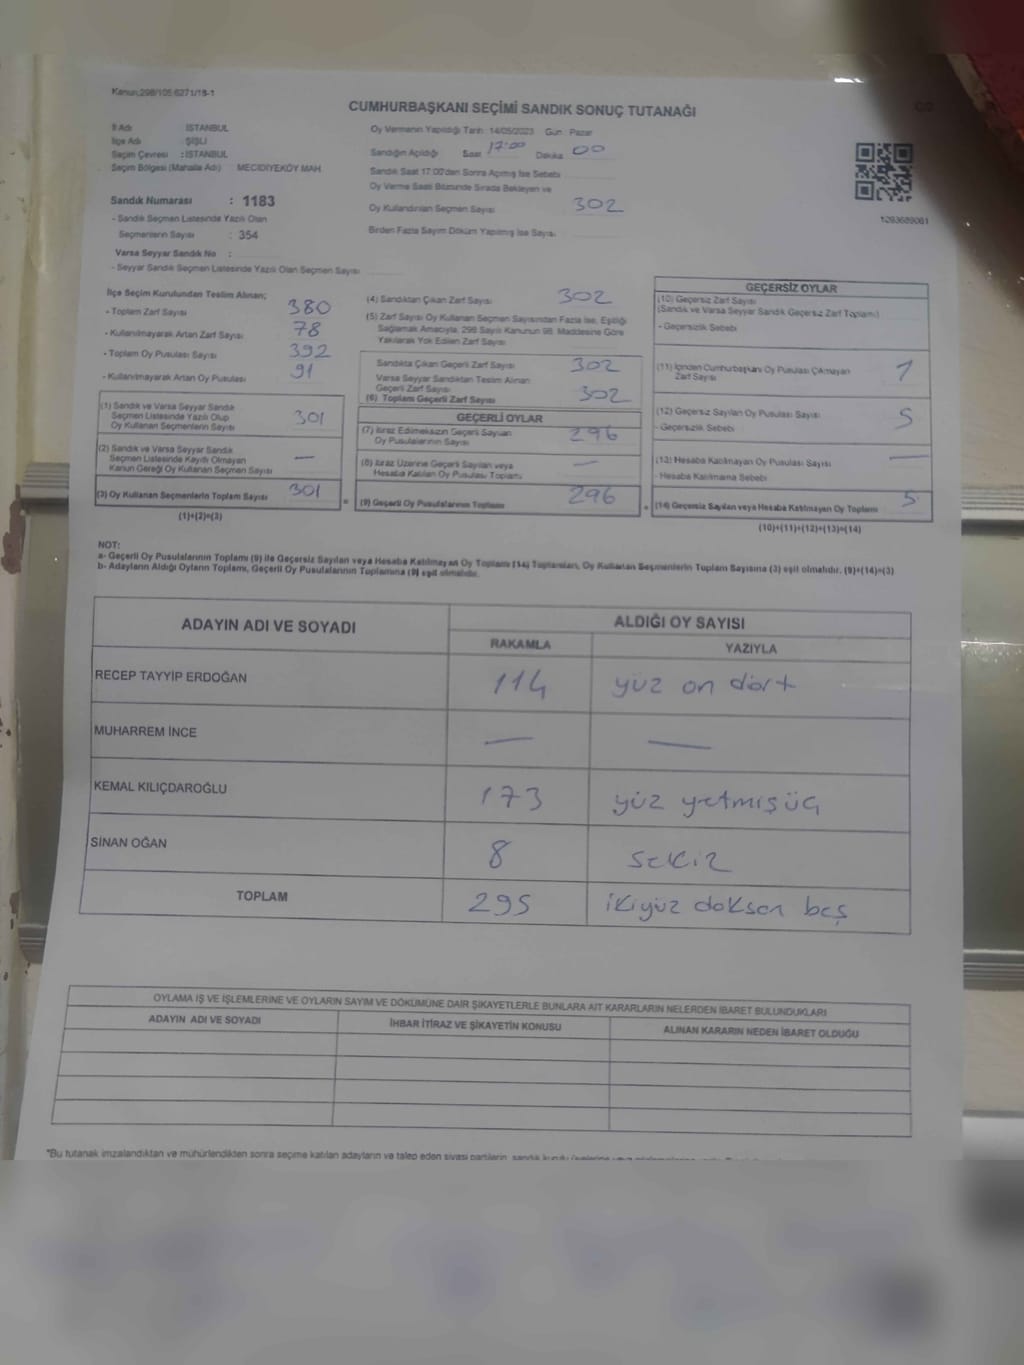 Kanun:298/105 6271/18-1
CUMHURBAŞKANI SEÇİMİ SANDIK SONUÇ TUTANAĞI
İl Adı : İSTANBUL
İlçe Adı : ŞİŞLİ
Seçim Çevresi : İSTANBUL
Seçim Bölgesi (Mahalle Adı) MECİDİYEKÖY MAH
Sandık Numarası : 1183
- Sandık Seçmen Listesinde Yazılı Olan
Seçmenlerin Sayısı : 354
Varsa Seyyar Sandık No :
- Seyyar Sandık Seçmen Listesinde Yazılı Olan Seçmen Sayısı
Oy Vermenin Yapıldığı Tarih : 14/05/2023 Gün : Pazar
Sandığın Açıldığı Saat 17:00 Dakika 00
Sandık Saat 17.00'den Sonra Açılmış İse Sebebi
Oy Verme Saati Bitiminde Sırada Bekleyen ve
Oy Kullandırılan Seçmen Sayısı 302
Birden Fazla Sayım Döküm Yapılmış İse Sayısı
1093689061
İlçe Seçim Kurulundan Teslim Alınan;
- Toplam Zarf Sayısı 380
- Kullanılmayarak Artan Zarf Sayısı 78
- Toplam Oy Pusulası Sayısı 392
- Kullanılmayarak Artan Oy Pusulası 91
(1) Sandık ve Varsa Seyyar Sandık
Seçmen Listesinde Yazılı Olup
Oy Kullanan Seçmenlerin Sayısı 301
(2) Sandık ve Varsa Seyyar Sandık
Seçmen Listesinde Kayıtlı Olmayan
Kanun Gereği Oy Kullanan Seçmen Sayısı —
(3) Oy Kullanan Seçmenlerin Toplam Sayısı 301
(1)+(2)=(3)
(4) Sandıktan Çıkan Zarf Sayısı 302
(5) Zarf Sayısı Oy Kullanan Seçmen Sayısından Fazla İse, Eşitliği
Sağlamak Amacıyla, 298 Sayılı Kanunun 98. Maddesine Göre
Yakılarak Yok Edilen Zarf Sayısı
Sandıkta Çıkan Geçerli Zarf Sayısı 302
Varsa Seyyar Sandıktan Teslim Alınan
Geçerli Zarf Sayısı
(6) Toplam Geçerli Zarf Sayısı 302
GEÇERLİ OYLAR
(7) İtiraz Edilmeksizin Geçerli Sayılan
Oy Pusulalarının Sayısı 296
(8) İtiraz Üzerine Geçerli Sayılan veya
Hesaba Katılan Oy Pusulası Toplamı —
(9) Geçerli Oy Pusulalarının Toplamı 296
GEÇERSİZ OYLAR
(10) Geçersiz Zarf Sayısı
(Sandık ve Varsa Seyyar Sandık Geçersiz Zarf Toplamı)
- Geçersizlik Sebebi
(11) İçinden Cumhurbaşkanı Oy Pusulası Çıkmayan
Zarf Sayısı 1
(12) Geçersiz Sayılan Oy Pusulası Sayısı 5
- Geçersizlik Sebebi
(13) Hesaba Katılmayan Oy Pusulası Sayısı —
- Hesaba Katılmama Sebebi
(14) Geçersiz Sayılan veya Hesaba Katılmayan Oy Toplamı 5
(10)+(11)+(12)+(13)=(14)
NOT:
a- Geçerli Oy Pusulalarının Toplamı (9) ile Geçersiz Sayılan veya Hesaba Katılmayan Oy Toplamı (14) Toplamları, Oy Kullanan Seçmenlerin Toplam Sayısına (3) eşit olmalıdır. (9)+(14)=(3)
b- Adayların Aldığı Oyların Toplamı, Geçerli Oy Pusulalarının Toplamına (9) eşit olmalıdır.
ADAYIN ADI VE SOYADI ALDIĞI OY SAYISI
RAKAMLA YAZIYLA
RECEP TAYYİP ERDOĞAN 114 yüz on dört
MUHARREM İNCE — —
KEMAL KILIÇDAROĞLU 173 yüz yetmişüç
SİNAN OĞAN 8 sekiz
TOPLAM 295 ikiyüz doksan beş
OYLAMA İŞ VE İŞLEMLERİNE VE OYLARIN SAYIM VE DÖKÜMÜNE DAİR ŞİKAYETLERLE BUNLARA AİT KARARLARIN NELERDEN İBARET BULUNDUKLARI
ADAYIN ADI VE SOYADI İHBAR İTİRAZ VE ŞİKAYETİN KONUSU ALINAN KARARIN NEDEN İBARET OLDUĞU
*Bu tutanak imzalandıktan ve mühürlendikten sonra seçime katılan adayların ve talep eden siyasi partilerin, sandık kurulu